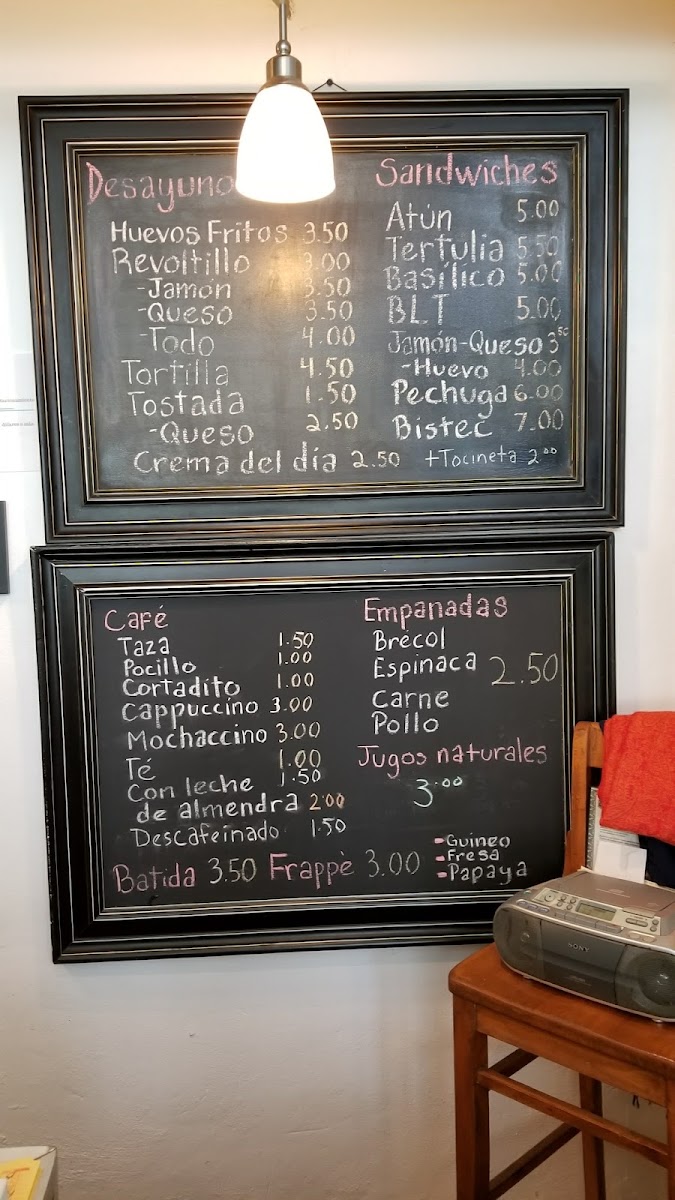 Desayuno
Huevos Fritos 3.50
Revoltillo 3.00
-Jamón 3.50
-Queso 3.50
-Todo 4.00
Tortilla 4.50
Tostada 1.50
-Queso 2.50
Crema del día 2.50
Sandwiches
Atún 5.00
Tertulia 5.50
Basílico 5.00
BLT 5.00
Jamón-Queso 3 50
-Huevo 4.00
Pechuga 6.00
Bistec 7.00
+Tocineta 2.00
Café
Taza 1.50
Pocillo 1.00
Cortadito 1.00
Cappuccino 3.00
Mochaccino 3.00
Té 1.00
Con leche 1.50
de almendra 2.00
Descafeinado 1.50
Empanadas
Brécol
Espinaca 2.50
Carne
Pollo
Jugos naturales
3.00
Batida 3.50 Frappè 3.00
-Guineo
-Fresa
-Papaya
SONY